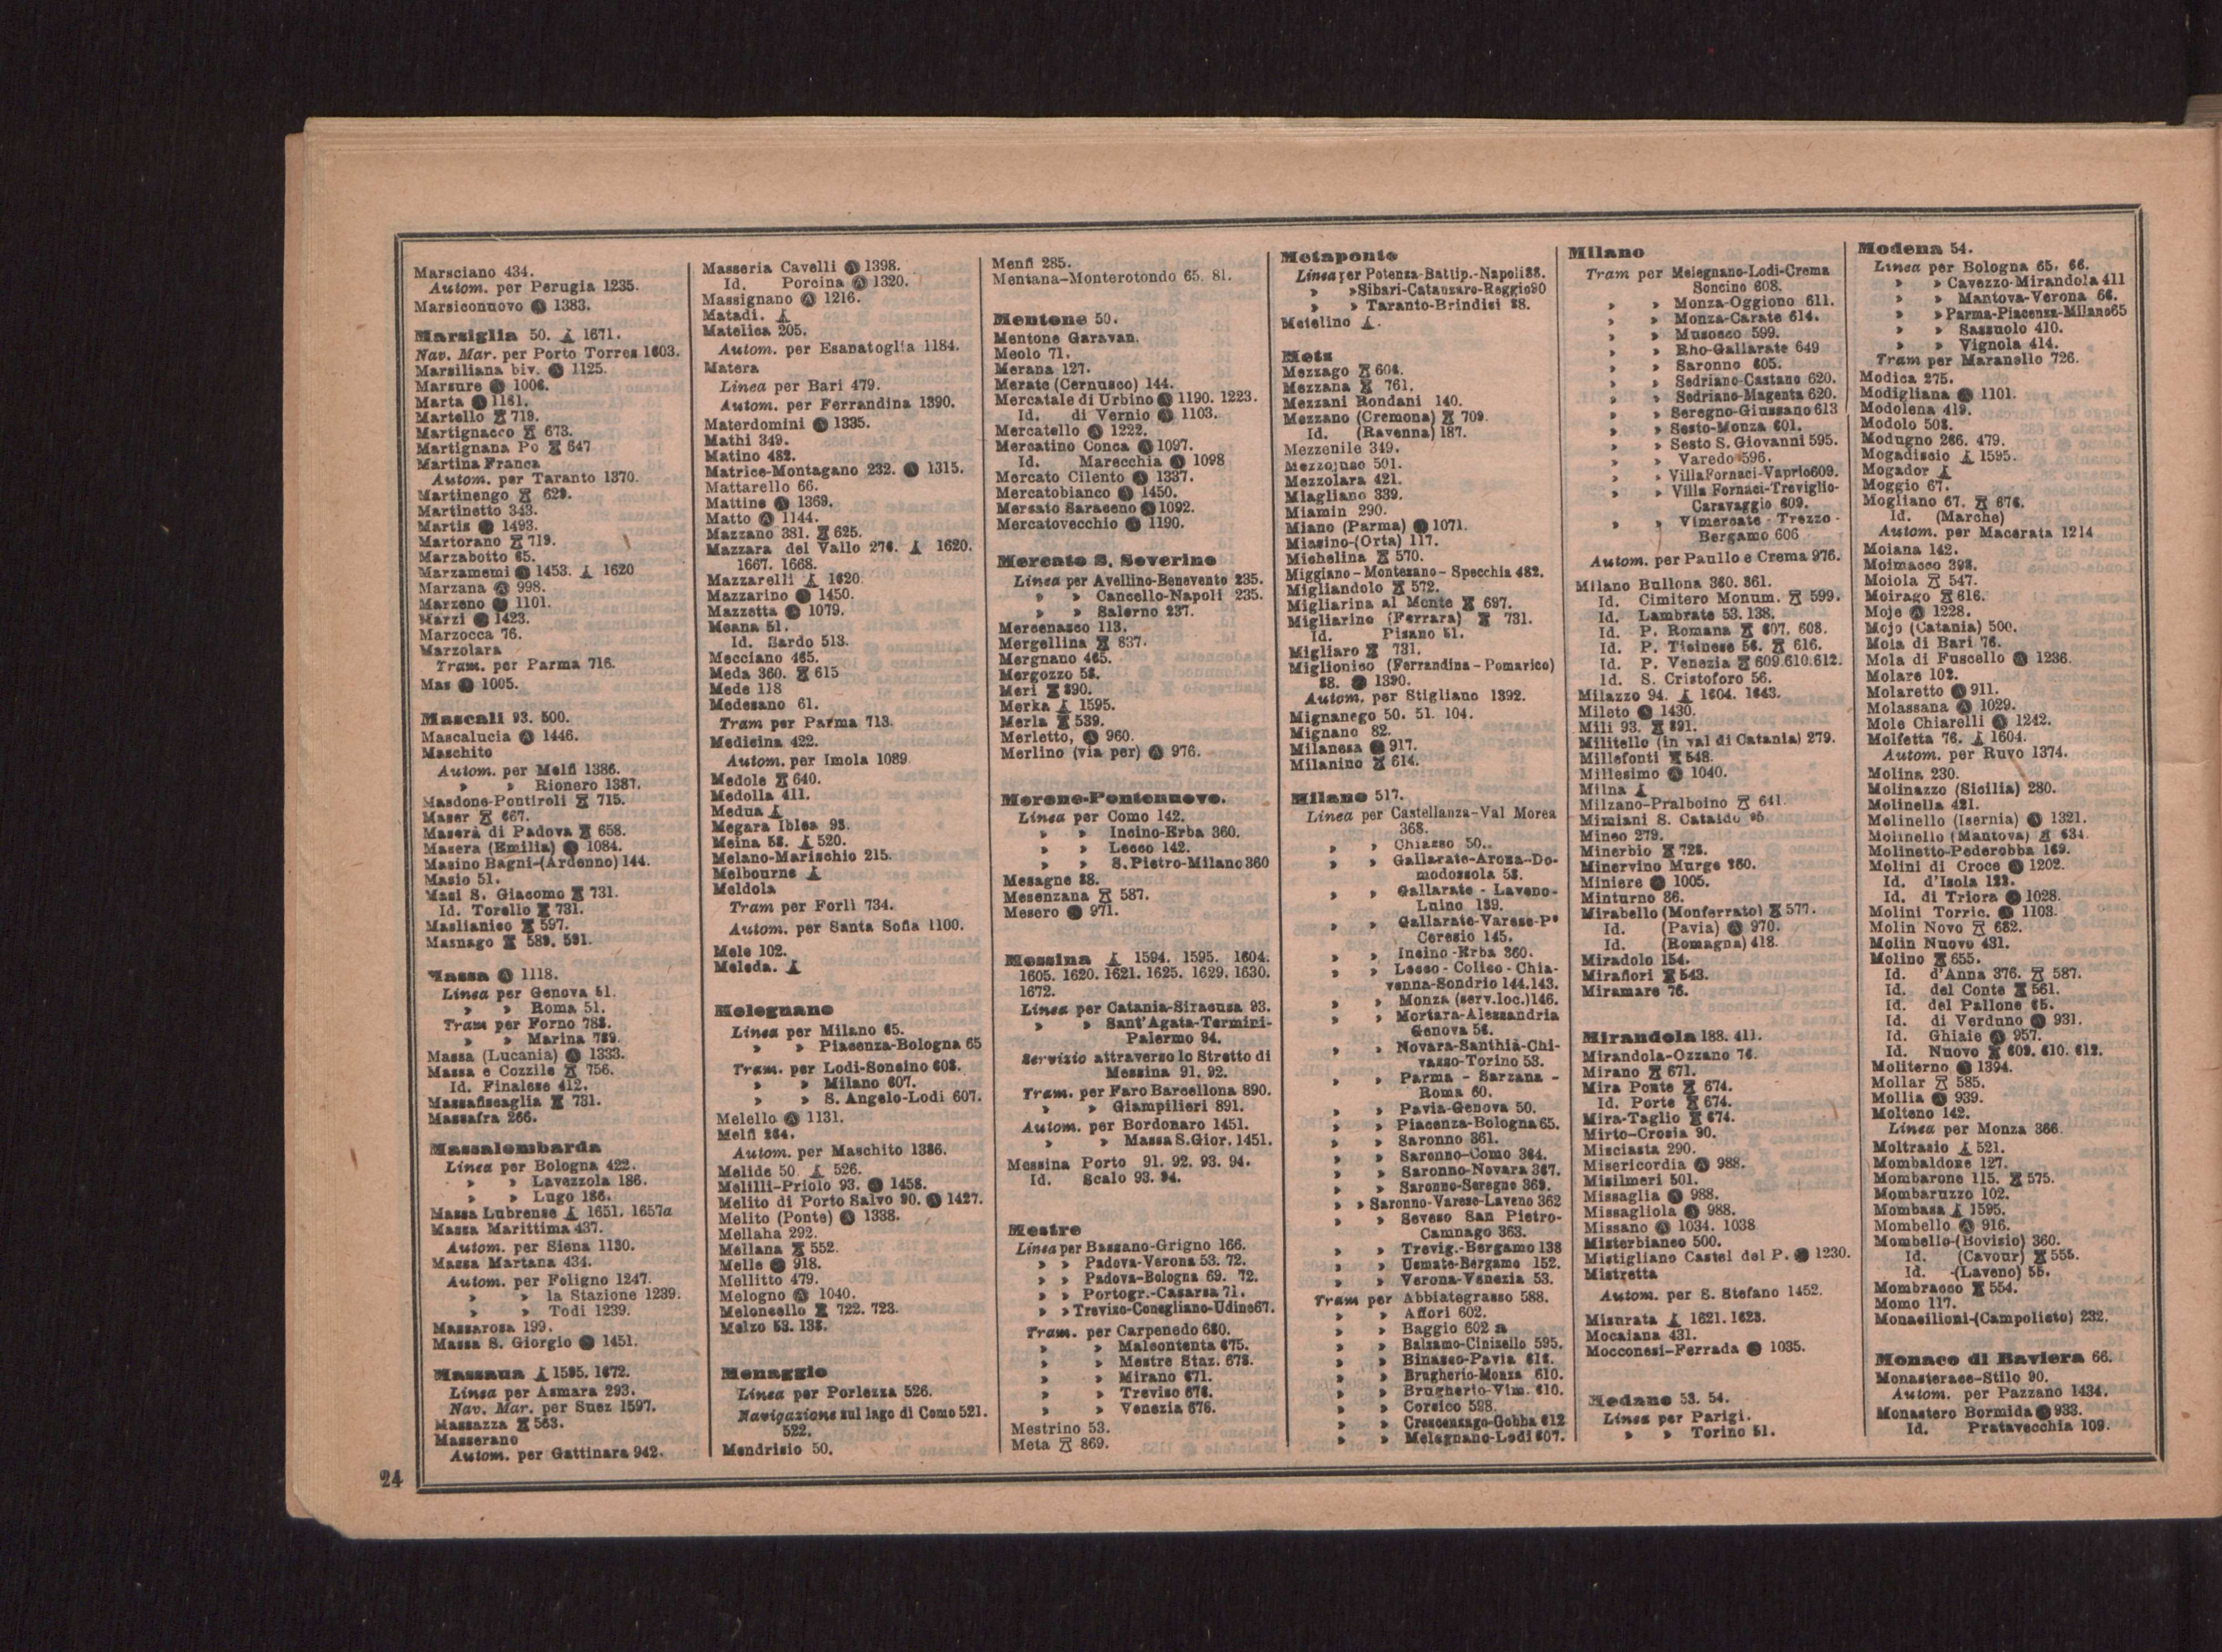 Marsciano 434.
Autom. per Perugia 1235.
Marsiconuovo Ⓐ 1383.
Marsiglia 50. 1671.
Nav. Mar. per Porto Torres 1603.
Marsiliana biv. Ⓐ 1125.
Marsure Ⓐ 1006.
Marta Ⓐ 1181.
Martello 719.
Martignacco 673.
Martignana Po 647
Martina Franca
Autom. per Taranto 1370.
Martinengo 629.
Martinetto 343.
Martis Ⓐ 1493.
Martorano 719.
Marzabotto 65.
Marzamemi Ⓐ 1453. 1620
Marzana Ⓐ 998.
Marzeno Ⓐ 1101.
Marzi Ⓐ 1423.
Marzocca 76.
Marzolara
Tram. per Parma 716.
Mas Ⓐ 1005.
Mascali 93. 500.
Mascalucia Ⓐ 1446.
Maschito
Autom. per Melfi 1386.
» » Rionero 1387.
Masdone-Pontiroli 715.
Maser 667.
Maserà di Padova 658.
Masera (Emilia) Ⓐ 1084.
Masino Bagni-(Ardenno) 144.
Masio 51.
Masi S. Giacomo 731.
Id. Torello 731.
Maslianico 597.
Masnago 589. 591.
Massa Ⓐ 1118.
Linea per Genova 51.
» » Roma 51.
Tram per Forno 788.
» » Marina 789.
Massa (Lucania) Ⓐ 1333.
Massa e Cozzile 756.
Id. Finalese 412.
Massafiscaglia 731.
Massafra 266.
Massalombarda
Linea per Bologna 422.
» » Lavezzola 186.
» » Lugo 186.
Massa Lubrense 1651. 1657a
Massa Marittima 437.
Autom. per Siena 1130.
Massa Martana 434.
Autom. per Foligno 1247.
» » la Stazione 1239.
» » Todi 1239.
Massarosa 199.
Massa S. Giorgio Ⓐ 1451.
Massaua 1595. 1672.
Linea per Asmara 293.
Nav. Mar. per Suez 1597.
Massazza 563.
Masserano
Autom. per Gattinara 942.
Masseria Cavelli Ⓐ 1398.
Id. Porcina Ⓐ 1320.
Massignano Ⓐ 1216.
Matadi.
Matelica 205.
Autom. per Esanatoglia 1184.
Matera
Linea per Bari 479.
Autom. per Ferrandina 1390.
Materdomini Ⓐ 1335.
Mathi 349.
Matino 482.
Matrice-Montagano 232. Ⓐ 1315.
Mattarello 66.
Mattine Ⓐ 1369.
Matto Ⓐ 1144.
Mazzano 381. 625.
Mazzara del Vallo 276. 1620.
1667. 1668.
Mazzarelli 1620.
Mazzarino Ⓐ 1450.
Mazzetta Ⓐ 1079.
Meana 51.
Id. Sardo 513.
Mecciano 465.
Meda 360. 615
Mede 118
Medesano 61.
Tram per Parma 713.
Medicina 422.
Autom. per Imola 1089.
Medole 640.
Medolla 411.
Medua
Megara Iblea 93.
Meina 53. 520.
Melano-Marischio 215.
Melbourne
Meldola
Tram per Forlì 734.
Autom. per Santa Sofia 1100.
Mele 102.
Meleda.
Melegnano
Linea per Milano 65.
» » Piacenza-Bologna 65
Tram. per Lodi-Soncino 608.
» » Milano 607.
» » S. Angelo-Lodi 607.
Melello Ⓐ 1131.
Melfi 264.
Autom. per Maschito 1386.
Melide 50. 526.
Melilli-Priolo 93. Ⓐ 1458.
Melito di Porto Salvo 90. Ⓐ 1427.
Melito (Ponte) Ⓐ 1338.
Mellaha 292.
Mellana 552.
Melle Ⓐ 918.
Mellitto 479.
Melogno Ⓐ 1040.
Meloncello 722. 723.
Melzo 53. 138.
Menaggio
Linea per Porlezza 526.
Navigazione sul lago di Como 521.
522.
Mendrisio 50.
Menfi 285.
Mentana-Monterotondo 65. 81.
Mentone 50.
Mentone Garavan.
Meolo 71.
Merana 127.
Merate (Cernusco) 144.
Mercatale di Urbino Ⓐ 1190. 1223.
Id. di Vernio Ⓐ 1103.
Mercatello Ⓐ 1222.
Mercatino Conca Ⓐ 1097.
Id. Marecchia Ⓐ 1098
Mercato Cilento Ⓐ 1337.
Mercatobianco Ⓐ 1450.
Mercato Saraceno Ⓐ 1092.
Mercatovecchio Ⓐ 1190.
Mercato S. Severino
Linea per Avellino-Benevento 235.
» » Cancello-Napoli 235.
» » Salerno 237.
Mercenasco 113.
Mergellina 837.
Mergnano 465.
Mergozzo 53.
Merì 890.
Merka 1595.
Merla 539.
Merletto, Ⓐ 960.
Merlino (via per) Ⓐ 976.
Merone-Pontenuovo.
Linea per Como 142.
» » Incino-Erba 360.
» » Lecco 142.
» » S. Pietro-Milano 360
Mesagne 88.
Mesenzana 587.
Mesero Ⓐ 971.
Messina 1594. 1595. 1604.
1605. 1620. 1621. 1625. 1629. 1630.
1672.
Linea per Catania-Siracusa 93.
» » Sant'Agata-Termini-
Palermo 94.
Servizio attraverso lo Stretto di
Messina 91. 92.
Tram. per Faro Barcellona 890.
» » Giampilieri 891.
Autom. per Bordonaro 1451.
» » Massa S. Gior. 1451.
Messina Porto 91. 92. 93. 94.
Id. Scalo 93. 94.
Mestre
Linea per Bassano-Grigno 166.
» » Padova-Verona 53. 72.
» » Padova-Bologna 69. 72.
» » Portogr.-Casarsa 71.
» » Treviso-Conegliano-Udine 67.
Tram. per Carpenedo 680.
» » Malcontenta 675.
» » Mestre Staz. 678.
» » Mirano 671.
» » Treviso 676.
» » Venezia 676.
Mestrino 53.
Meta 869.
Metaponto
Linea per Potenza-Battip.-Napoli 88.
» » Sibari-Catanzaro-Reggio 90
» » Taranto-Brindisi 88.
Metelino
Metz
Mezzago 604.
Mezzana 761.
Mezzani Rondani 140.
Mezzano (Cremona) 709.
Id. (Ravenna) 187.
Mezzenile 349.
Mezzojuso 501.
Mezzolara 421.
Miagliano 339.
Miamin 290.
Miano (Parma) Ⓐ 1071.
Miasino-(Orta) 117.
Michelina 570.
Miggiano-Montesano-Specchia 482.
Migliandolo 572.
Migliarina al Monte 697.
Migliarino (Ferrara) 731.
Id. Pisano 51.
Migliaro 731.
Miglionico (Ferrandina-Pomarico)
88. Ⓐ 1390.
Autom. per Stigliano 1392.
Mignanego 50. 51. 104.
Mignano 82.
Milanesa Ⓐ 917.
Milanino 614.
Milano 517.
Linea per Castellanza-Val Morea
368.
» » Chiasso 50.
» » Gallarate-Arona-Do-
modossola 53.
» » Gallarate - Laveno-
Luino 139.
» » Gallarate-Varese-Pº
Ceresio 145.
» » Incino-Erba 360.
» » Lecco - Colico - Chia-
venna-Sondrio 144. 143.
» » Monza (serv. loc.) 146.
» » Mortara-Alessandria
Genova 56.
» » Novara-Santhià-Chi-
vasso-Torino 53.
» » Parma - Sarzana -
Roma 60.
» » Pavia-Genova 50.
» » Piacenza-Bologna 65.
» » Saronno 361.
» » Saronno-Como 364.
» » Saronno-Novara 367.
» » Saronno-Seregno 369.
» » Saronno-Varese-Laveno 362
» » Seveso San Pietro-
Camnago 363.
» » Trevig.-Bergamo 138
» » Usmate-Bergamo 152.
» » Verona-Venezia 53.
Tram per Abbiategrasso 588.
» » Affori 602.
» » Baggio 602 a
» » Balsamo-Cinisello 595.
» » Binasco-Pavia 618.
» » Brugherio-Monza 610.
» » Brugherio-Vim. 610.
» » Corsico 598.
» » Crescenzago-Gobba 612
» » Melegnano-Lodi 607.
Milano
Tram per Melegnano-Lodi-Crema
Soncino 608.
» » Monza-Oggiono 611.
» » Monza-Carate 614.
» » Musocco 599.
» » Rho-Gallarate 649
» » Saronno 605.
» » Sedriano-Castano 620.
» » Sedriano-Magenta 620.
» » Seregno-Giussano 613
» » Sesto-Monza 601.
» » Sesto S. Giovanni 595.
» » Varedo 596.
» » Villa Fornaci-Vaprio 609.
» » Villa Fornaci-Treviglio-
Caravaggio 609.
» » Vimercate - Trezzo -
Bergamo 606
Autom. per Paullo e Crema 976.
Milano Bullona 360. 361.
Id. Cimitero Monum. 599.
Id. Lambrate 53. 138.
Id. P. Romana 607. 608.
Id. P. Ticinese 56. 616.
Id. P. Venezia 609. 610. 612.
Id. S. Cristoforo 56.
Milazzo 94. 1604. 1643.
Mileto Ⓐ 1430.
Mili 93. 891.
Militello (in val di Catania) 279.
Millefonti 548.
Millesimo Ⓐ 1040.
Milna
Milzano-Pralboino 641.
Mimiani S. Cataldo 95
Mineo 279.
Minerbio 728.
Minervino Murge 260.
Miniere Ⓐ 1005.
Minturno 86.
Mirabello (Monferrato) 577.
Id. (Pavia) Ⓐ 970.
Id. (Romagna) 418.
Miradolo 154.
Mirafiori 543.
Miramare 76.
Mirandola 188. 411.
Mirandola-Ozzano 76.
Mirano 671.
Mira Ponte 674.
Id. Porte 674.
Mira-Taglio 674.
Mirto-Crosia 90.
Misciasta 290.
Misericordia Ⓐ 988.
Misilmeri 501.
Missaglia Ⓐ 988.
Missagliola Ⓐ 988.
Missano Ⓐ 1034. 1038
Misterbianco 500.
Mistigliano Castel del P. Ⓐ 1230.
Mistretta
Autom. per S. Stefano 1452.
Misurata 1621. 1623.
Mocaiana 431.
Mocconesi-Ferrada Ⓐ 1035.
Modane 53. 54.
Linea per Parigi.
» » Torino 51.
Modena 54.
Linea per Bologna 65. 66.
» » Cavezzo-Mirandola 411
» » Mantova-Verona 66.
» » Parma-Piacenza-Milano 65
» » Sassuolo 410.
» » Vignola 414.
Tram per Maranello 726.
Modica 275.
Modigliana Ⓐ 1101.
Modolena 419.
Modolo 508.
Modugno 266. 479.
Mogadiscio 1595.
Mogador
Moggio 67.
Mogliano 67. 676.
Id. (Marche)
Autom. per Macerata 1214
Moiana 142.
Moimacco 398.
Moiola 547.
Moirago 616.
Moje Ⓐ 1228.
Mojo (Catania) 500.
Mola di Bari 76.
Mola di Fuscello Ⓐ 1236.
Molare 102.
Molaretto Ⓐ 911.
Molassana Ⓐ 1029.
Mole Chiarelli Ⓐ 1242.
Molfetta 76. 1604.
Autom. per Ruvo 1374.
Molina 230.
Molinazzo (Sicilia) 280.
Molinella 421.
Molinello (Isernia) Ⓐ 1321.
Molinello (Mantova) 634.
Molinetto-Pederobba 169.
Molini di Croce Ⓐ 1202.
Id. d'Isola 123.
Id. di Triora Ⓐ 1028.
Molini Torric. Ⓐ 1103.
Molin Novo 682.
Molin Nuovo 431.
Molino 655.
Id. d'Anna 376. 587.
Id. del Conte 561.
Id. del Pallone 65.
Id. di Verduno Ⓐ 931.
Id. Ghiaie Ⓐ 957.
Id. Nuovo 609. 610. 612.
Moliterno Ⓐ 1394.
Mollar 585.
Mollia Ⓐ 939.
Molteno 142.
Linea per Monza 366.
Moltrasio 521.
Mombaldone 127.
Mombarone 115. 575.
Mombaruzzo 102.
Mombasa 1595.
Mombello Ⓐ 916.
Mombello-(Bovisio) 360.
Id. (Cavour) 555.
Id. -(Laveno) 55.
Mombracco 554.
Momo 117.
Monacilioni-(Campolieto) 232.
Monaco di Baviera 66.
Monasterace-Stilo 90.
Autom. per Pazzano 1434.
Monastero Bormida Ⓐ 933.
Id. Pratavecchia 109.
24